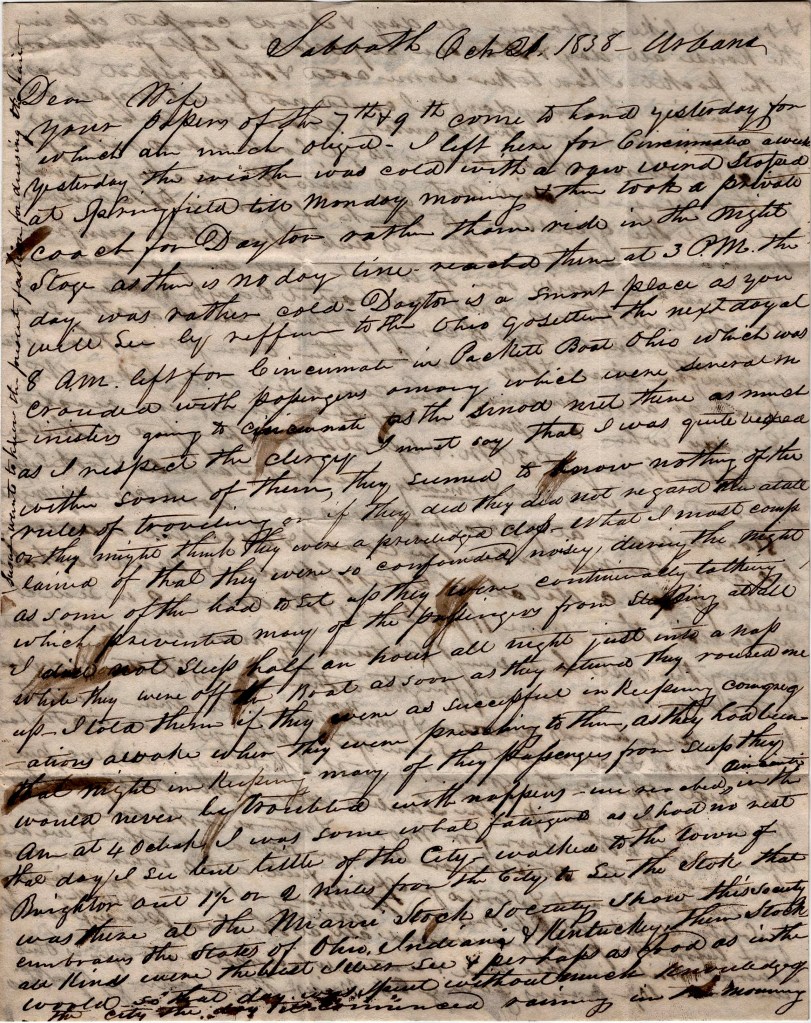 Sabbath Oct 21. 1838 - Urbana
Dear Wife
Your papers of the 7th & 9th come to hand yesterday for
which am much obliged - I left here for Cincinnatia a week
yesterday the weather was cold with a raw wind stoped
at Springfield till Monday morning & then took a private
coach for Dayton rather than ride in the Night
Stage as ther is no day line - reached them at 3 P.M. the
day was rather cold - Dayton is a smart place as you
will See by reffering to the Ohio Gosetteer the next day at
8 A.M. left for Cincinnati in Packett Boat Ohio which was
crouded with passengers among which were several m
inisters going to Cincinnate as the Sinod met there as much
as I respect the clergy I must say that I was quite vexed
within some of them, they seemed to know nothing of the
rules of traveling or if they did they did not regard them atall
or they might think they were a priviledged class - What I most comp
lained of that they were so confounded noisey, during the Night
as some of them had to Set up they were continually talking
which prevented many of the passengers from Sleeping atall
I did not Sleep half an hour all night just into a nap
while they were off the Boat as soon as they returned they roused me
up - I told them if they were as successful in Keeping congreg
ations awake when they were preaching to them, as they had been
that night in Keeping many of they passengers from Sleep they
would never be troubled with nappers - we reached Cincinnati in the
Am at 4 Oclock I was some what fatigued as I had no rest
that day I see but little of the City - walked to the town of
Brighton out 1½ or 2 miles from the City to See the Stock that
was there at the Miami Stock Society Show this Society
embraces the States of Ohio, Indiana & Kentucky, them Stock
all Kind were the best I ever See & perhaps as good as in the
world - so that day was spent without much Knowledge of
the city the day commenced raining in the morning
wants to know the present fashion for dressing the hair